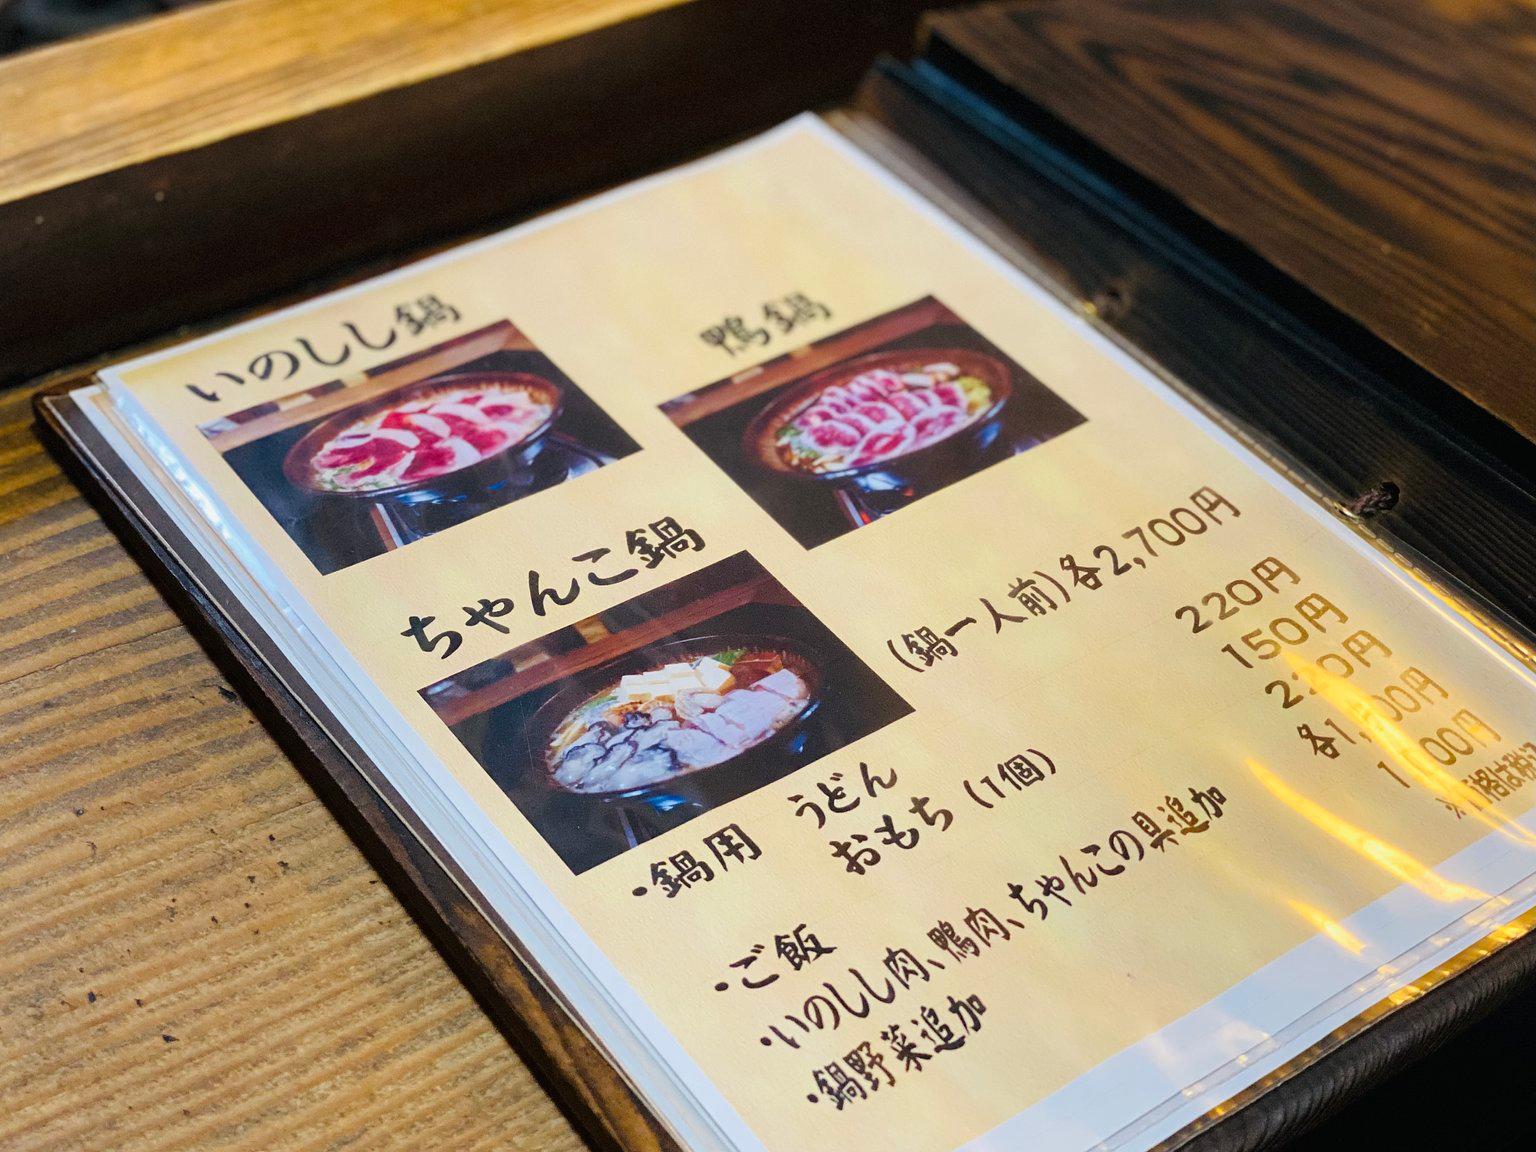 いのしし鍋
鴨鍋
ちゃんこ鍋
(鍋一人前)各2,700円
・鍋用 うどん 220円
おもち(1個) 150円
・ご飯 円
・いのしし肉、鴨肉、ちゃんこの具追加
・鍋野菜追加